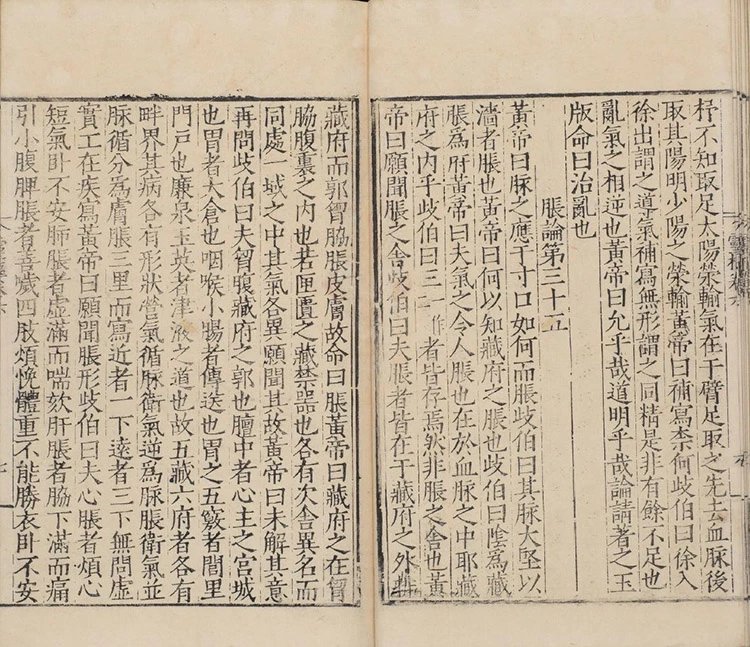 杼不知取足太陽滎輸氣在于臂足取之先去血脉後
取其陽明少陽之滎輸黃帝曰補寫柰何歧伯曰徐入
徐出謂之道氣補寫無形謂之同精是非有餘不足也
亂氣之相逆也黃帝曰允乎哉道明乎哉論請著之玉
版命曰治亂也
脹論第三十五
黃帝曰脉之應于寸口如何而脹歧伯曰其脉大堅以
濇者脹也黃帝曰何以知藏府之脹也歧伯曰陰爲藏
脹爲府黃帝曰夫氣之令人脹也在於血脉之中耶藏
府之内乎歧伯曰三一作者皆存焉然非脹之舍也黃
帝曰願聞脹之舍歧伯曰夫脹者皆在于藏府之外
藏府而郭胷脇脹皮膚故命曰脹黃帝曰藏府之在胷
脇腹裏之内也若匣匱之藏禁器也各有次舍異名而
同處一域之中其氣各異願聞其故黃帝曰未解其意
再問歧伯曰夫胷腹藏府之郭也膻中者心主之宮城
也胃者大倉也咽喉小腸者傳送也胃之五竅者閭里
門戸也廉泉玉英者津液之道也故五藏六府者各有
畔界其病各有形狀營氣循脉衛氣逆爲脉脹衛氣並
脉循分爲膚脹三里而寫近者一下遠者三下無問虛
實工在疾寫黃帝曰願聞脹形歧伯曰夫心脹者煩心
短氣臥不安肺脹者虛滿而喘欬肝脹者脇下滿而痛
引小腹脾脹者善歲四肢煩悗體重不能勝衣臥不安